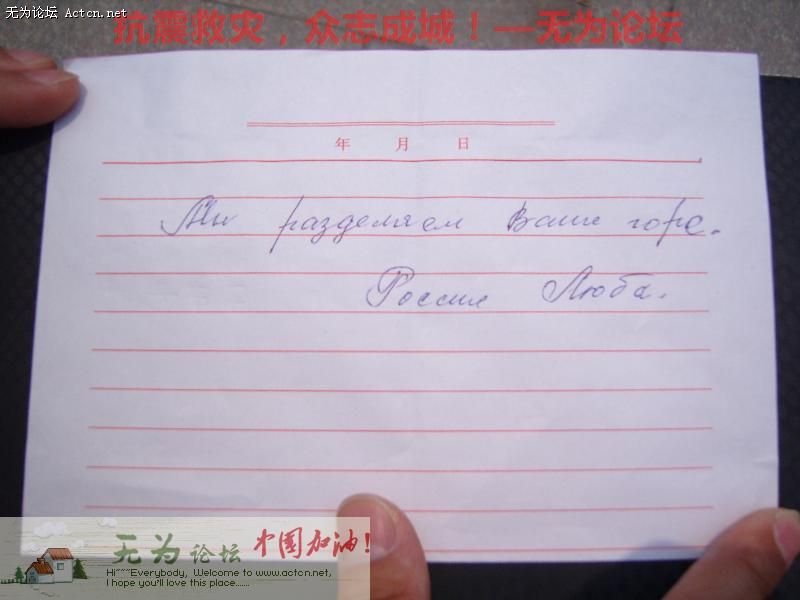 无为论坛 Actcn.net
抗震救灾，众志成城！—无为论坛
年 月 日
Мы разделяем Ваше горе.
Россия Люба.
无为论坛 中国加油!
Hi~~~Everybody, Welcome to www.actcn.net,
I hope you'll love this place......